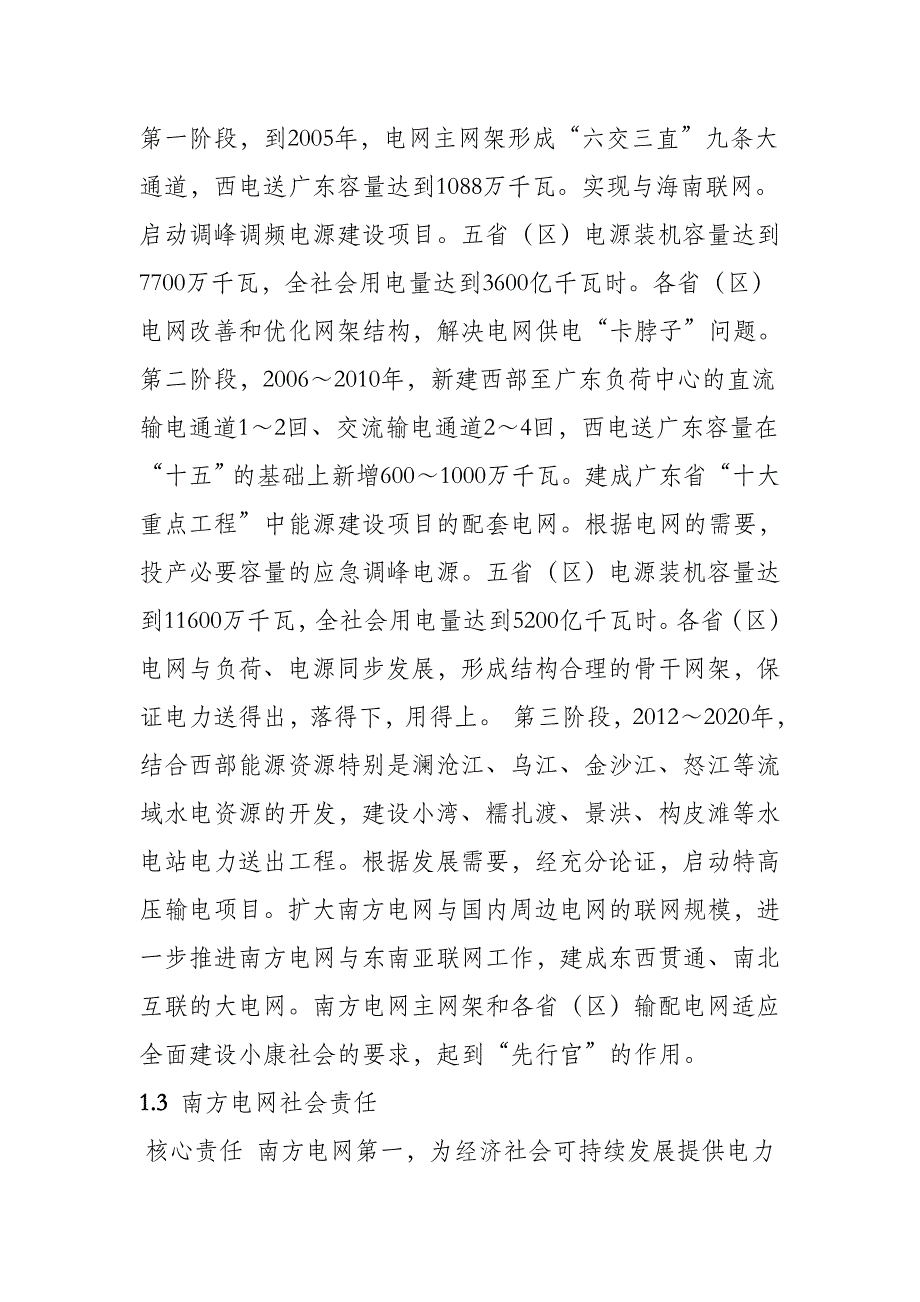 第一阶段，到2005年，电网主网架形成“六交三直”九条大
通道，西电送广东容量达到1088万千瓦。实现与海南联网。
启动调峰调频电源建设项目。五省（区）电源装机容量达到
7700万千瓦，全社会用电量达到3600亿千瓦时。各省（区）
电网改善和优化网架结构，解决电网供电“卡脖子”问题。
第二阶段，2006～2010年，新建西部至广东负荷中心的直流
输电通道1～2回、交流输电通道2～4回，西电送广东容量在
“十五”的基础上新增600～1000万千瓦。建成广东省“十大
重点工程”中能源建设项目的配套电网。根据电网的需要，
投产必要容量的应急调峰电源。五省（区）电源装机容量达
到11600万千瓦，全社会用电量达到5200亿千瓦时。各省（区）
电网与负荷、电源同步发展，形成结构合理的骨干网架，保
证电力送得出，落得下，用得上。 第三阶段，2012～2020年，
结合西部能源资源特别是澜沧江、乌江、金沙江、怒江等流
域水电资源的开发，建设小湾、糯扎渡、景洪、构皮滩等水
电站电力送出工程。根据发展需要，经充分论证，启动特高
压输电项目。扩大南方电网与国内周边电网的联网规模，进
一步推进南方电网与东南亚联网工作，建成东西贯通、南北
互联的大电网。南方电网主网架和各省（区）输配电网适应
全面建设小康社会的要求，起到“先行官”的作用。
1.3 南方电网社会责任
核心责任 南方电网第一，为经济社会可持续发展提供电力